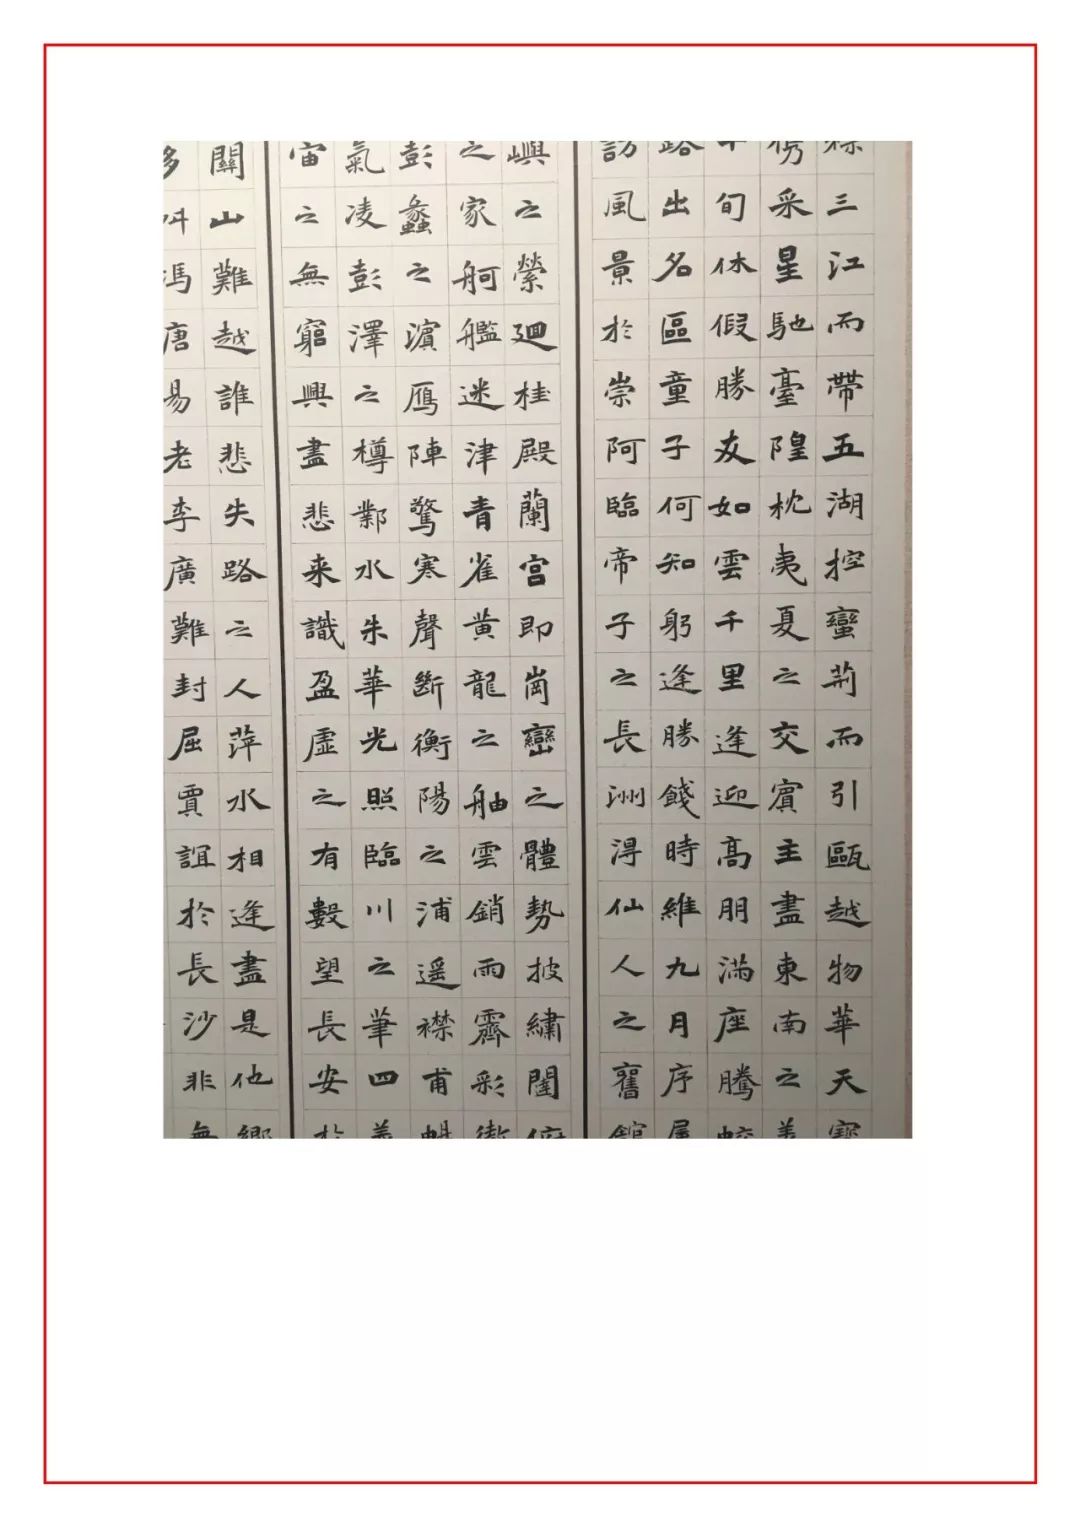 襟三江而帶五湖控蠻荆而引甌越物華天寶
儁采星馳臺隍枕夷夏之交賓主盡東南之美
十旬休假勝友如雲千里逢迎高朋滿座騰蛟
路出名區童子何知躬逢勝餞時維九月序屬
訪風景於崇阿臨帝子之長洲得仙人之舊館
嶼之縈迴桂殿蘭宮即崗巒之體勢披繡闥俯
之家舸艦迷津青雀黃龍之舳雲銷雨霽彩徹
彭蠡之濱鴈陣驚寒聲斷衡陽之浦遥襟甫暢
氣凌彭澤之樽鄴水朱華光照臨川之筆四美
宙之無窮興盡悲来識盈虛之有數望長安於
關山難越誰悲失路之人萍水相逢盡是他鄉
多舛馮唐易老李廣難封屈賈誼於長沙非無